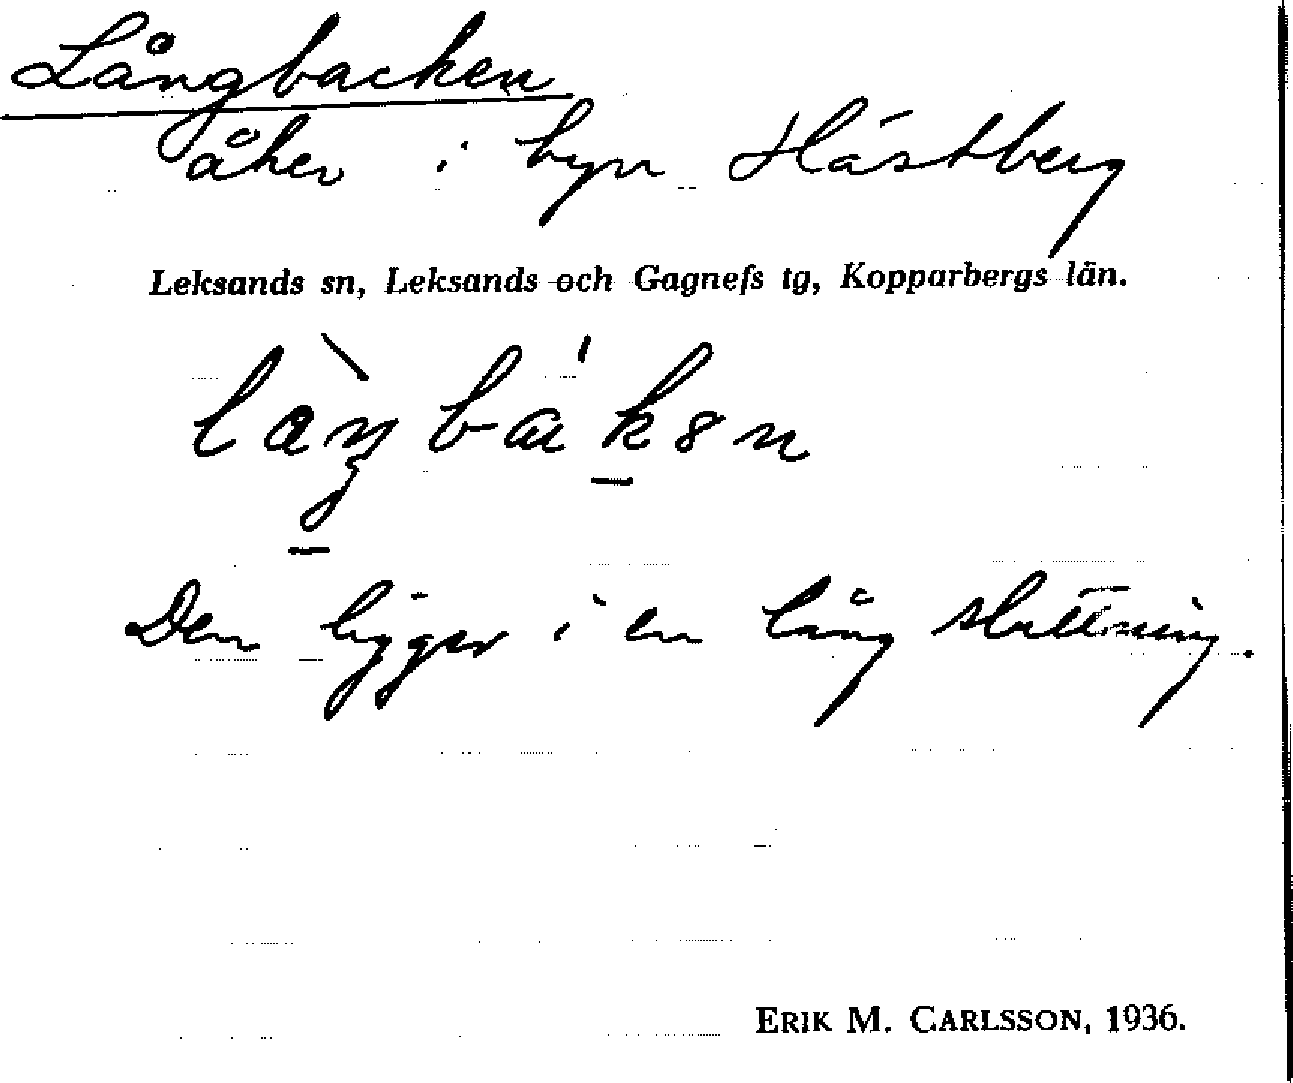 Långbacken
åker i byn Hästberg
Leksands sn, Leksands och Gagnefs tg, Kopparbergs län.
Den ligger i en lång sluttning.
ERIK M. CARLSSON, 1936.